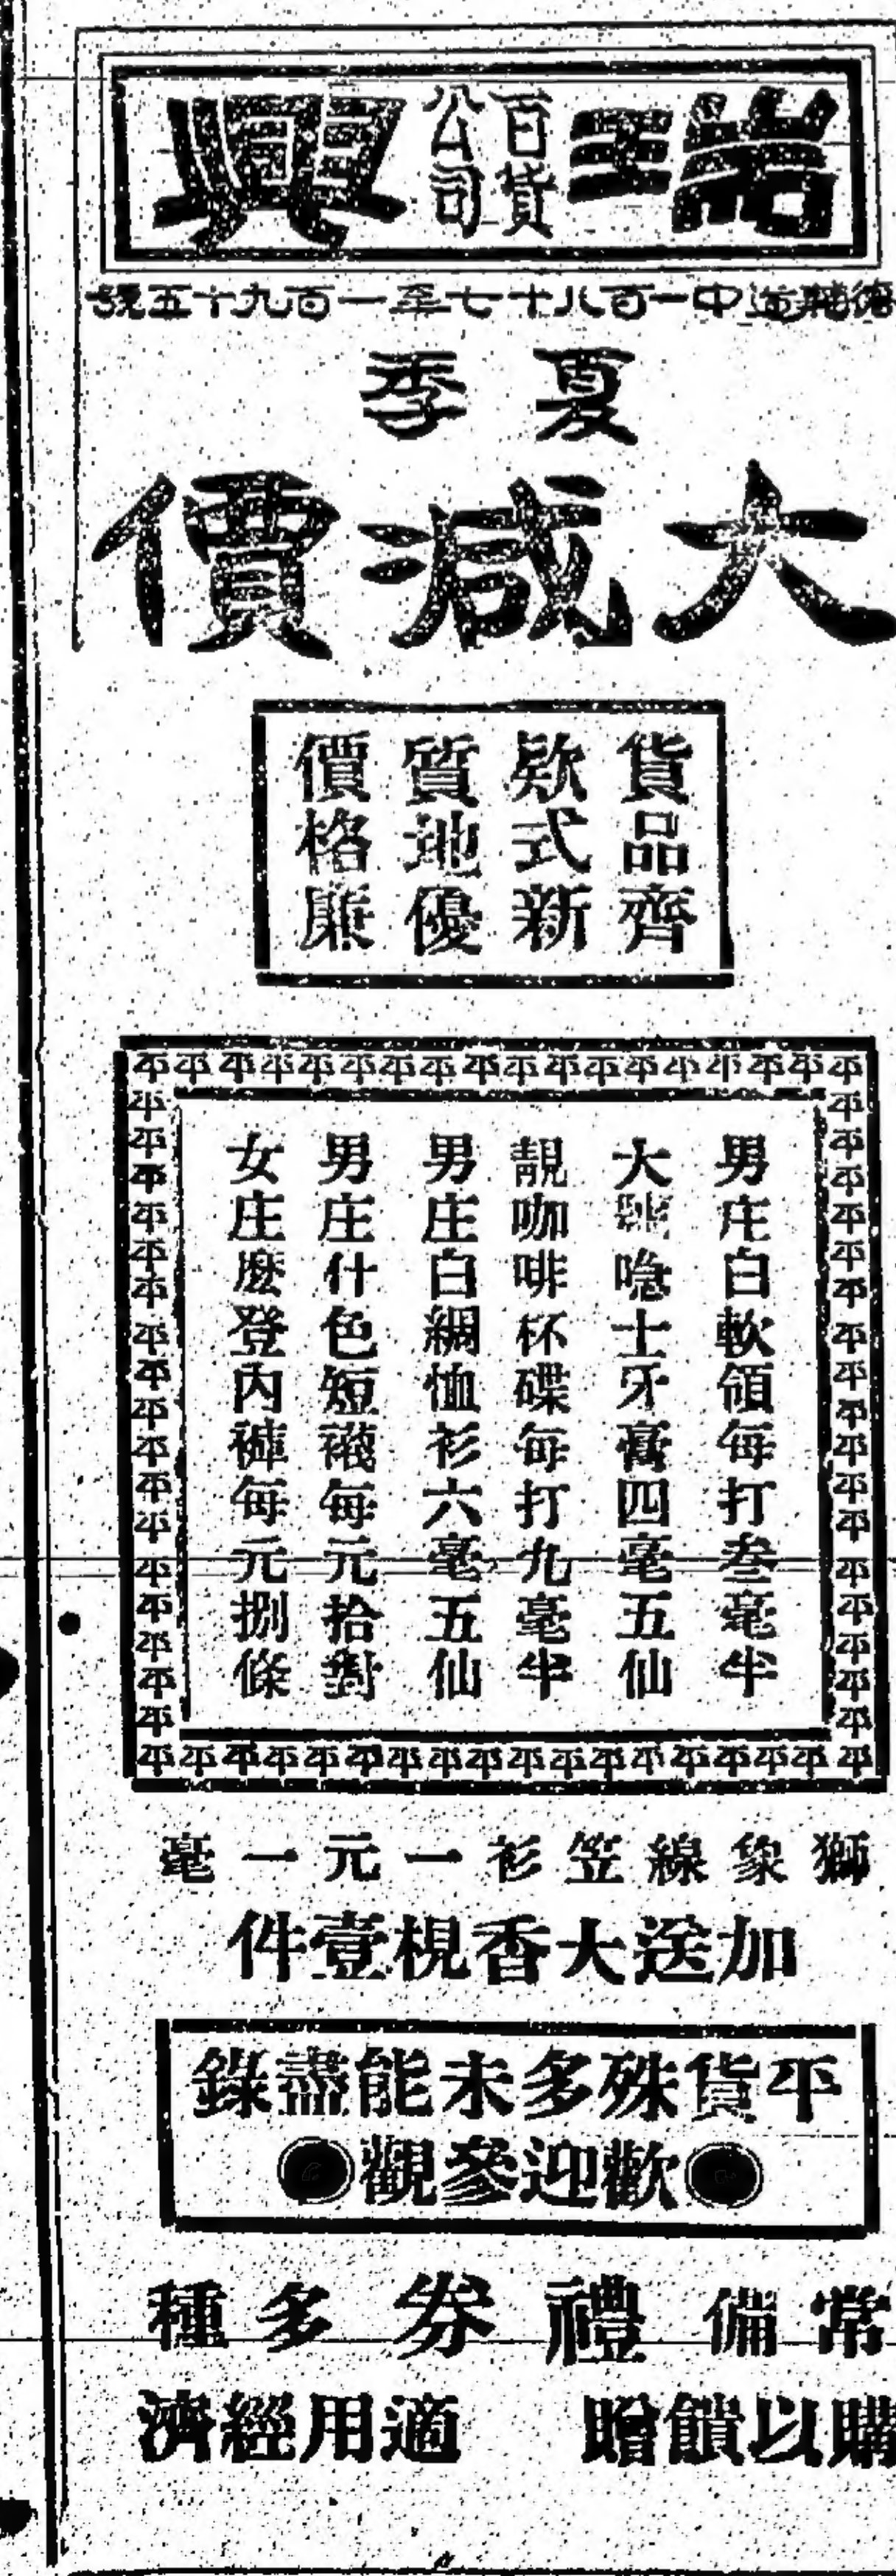 瑞興
百貨公司
德輔道中一百八十七至一百九十五號
夏季
大減價
貨品齊
欵式新
質地優
價格廉
平平平平平平平平平平平平平平平平平平
男庄白軟領每打叁毫半
大號喼士牙膏四毫五仙
靚咖啡杯碟每打九毫半
男庄白綢恤衫六毫五仙
男庄什色短襪每元拾對
女庄麽登內褲每元捌條
平平平平平平平平平平平平平平平平平平
獅象線笠衫一元一毫
加送大香梘壹件
平貨殊多未能盡錄
歡迎參觀
常備禮券多種
購以饋贈 適用經濟